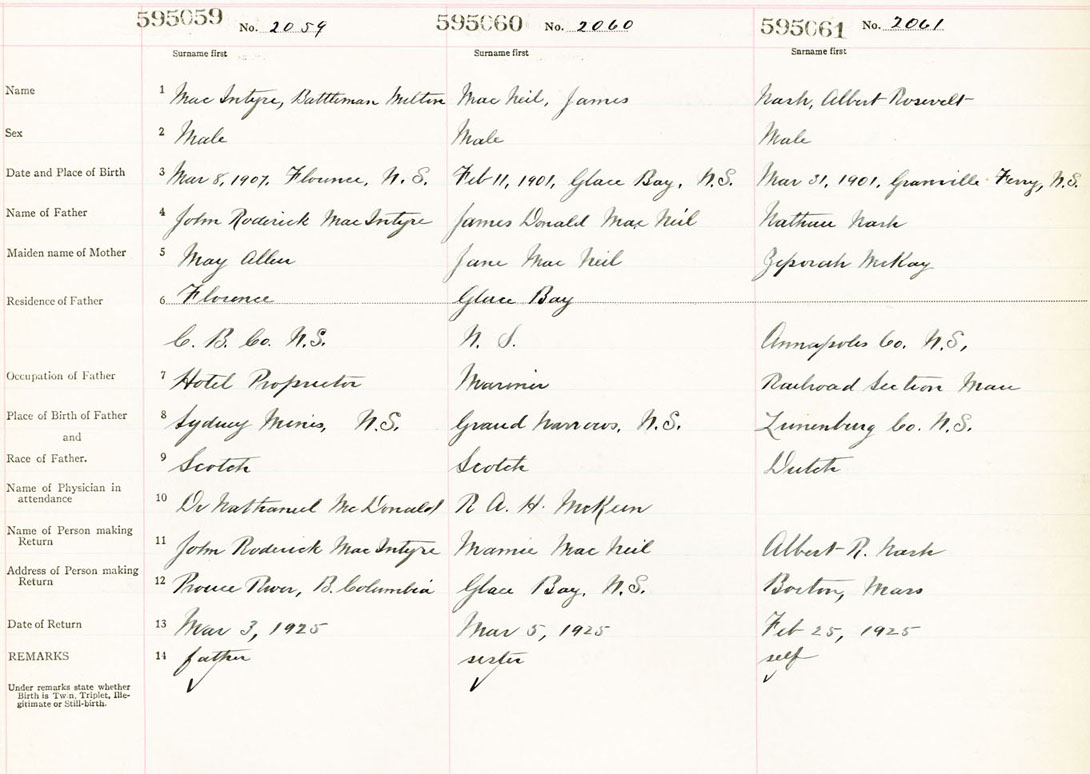 595059 No. 2059 595060 No. 2060 595061 No. 2061
Surname first Surname first Surname first
Name 1 Mac Intyre, Battleman Milton Mac Neil, James Nash, Albert Rosevelt
Sex 2 Male Male Male
Date and Place of Birth 3 Mar 8, 1907, Florence, N.S. Feb 11, 1901, Glace Bay, N.S. Mar 31, 1901, Granville Ferry, N.S.
Name of Father 4 John Roderick Mac Intyre James Donald Mac Neil Nathan Nash
Maiden name of Mother 5 May Allen Jane Mac Neil Zeporah McKay
Residence of Father 6 Florence Glace Bay
C. B. Co. N.S. N. S. Annapolis Co. N.S,
Occupation of Father 7 Hotel Proprietor Mariner Railroad Section Man
Place of Birth of Father 8 Sydney Mines, N.S. Grand Narrows, N.S. Lunenburg Co. N.S.
and
Race of Father. 9 Scotch Scotch Dutch
Name of Physician in
attendance 10 Dr Nathaniel McDonald R A. H. McKeen
Name of Person making
Return 11 John Roderick Mac Intyre Mamie Mac Neil Albert R. Nash
Address of Person making
Return 12 River, B. Columbia Glace Bay, N.S. Boston, Mass
Date of Return 13 Mar 3, 1925 Mar 5, 1925 Feb 25, 1925
REMARKS 14 father sister self
Under remarks state whether
Birth is Twin, Triplet, Ille-
gitimate or Still-birth.